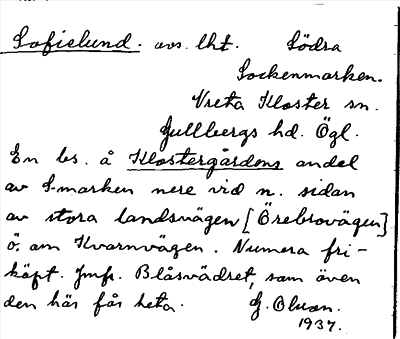 Sofielund. avs. lht. Södra
Sockenmarken.
Vreta Kloster sn.
Gullbergs hd. Ögl.
En bs. å Klostergårdens andel
av S-marken nere vid n. sidan
av stora landsvägen [Örebrovägen]
ö. om Kvarnvägen. Numera fri-
köpt. Jmfr. Blåsvädret, som även
den här får heta. G. Olson.
1937.